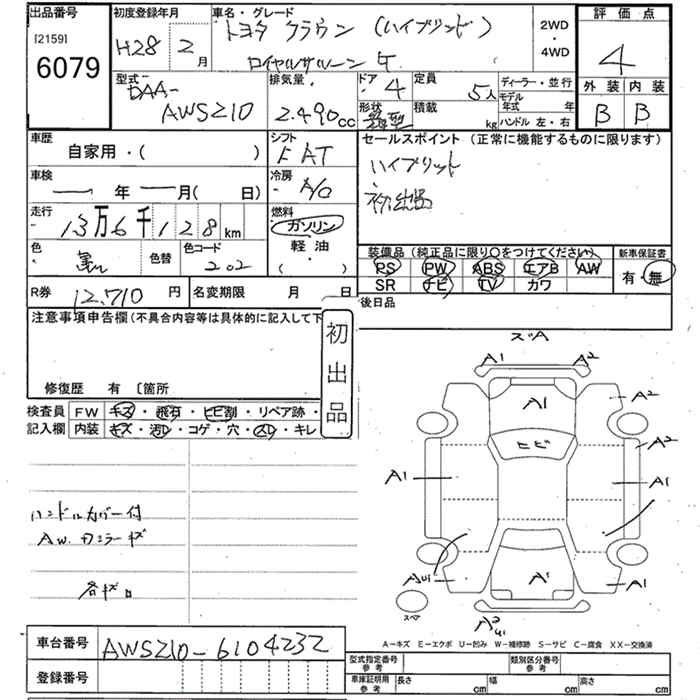 出品番号
[2159]
6079
初度登録年月
H28 2月
車名・グレード
トヨタ クラウン (ハイブリッド)
ロイヤルサルーン
2WD
・
4WD
評価点
4
外装 内装
B B
型式
DAA-
AWS210
排気量
2.490cc
ドア 4
形状
定員 5人
積載 kg
ディーラー・並行
モデル年式 年
ハンドル 左・右
車歴
自家用・( )
シフト
F AT
セールスポイント (正常に機能するものに限ります)
ハイブリット
初出品
車検
年 月( 日)
冷房
A/C
走行
13万6千128km
燃料
ガソリン
軽油
( )
色
黒
色替
色コード
202
装備品 (純正品に限り○をつけてください)
PS PW ABS エアB AW
SR ナビ TV カワ
新車保証書
有・無
R券 12,710円
名変期限 月 日
後日品
注意事項申告欄(不具合内容等は具体的に記入して下
初出品
修復歴 有 〔箇所
検査員記入欄
FW キズ・飛石・ヒビ割・リペア跡・
内装 キズ・汚レ・コゲ・穴・スレ・キレ
ハンドルカバー付
AW.
スズA
A1 A2
A1 A2
ヒビ A2
A1 A1
AU1 A1 A1
スペア
A2
U1
A-キズ E-エクボ U-凹み W-補修跡 S-サビ C-腐食 XX-交換済
車台番号 AWS210-6104232
登録番号
型式指定番号 参考
類別区分番号 参考
車庫証明用 参考
長さ cm 幅 cm 高さ cm